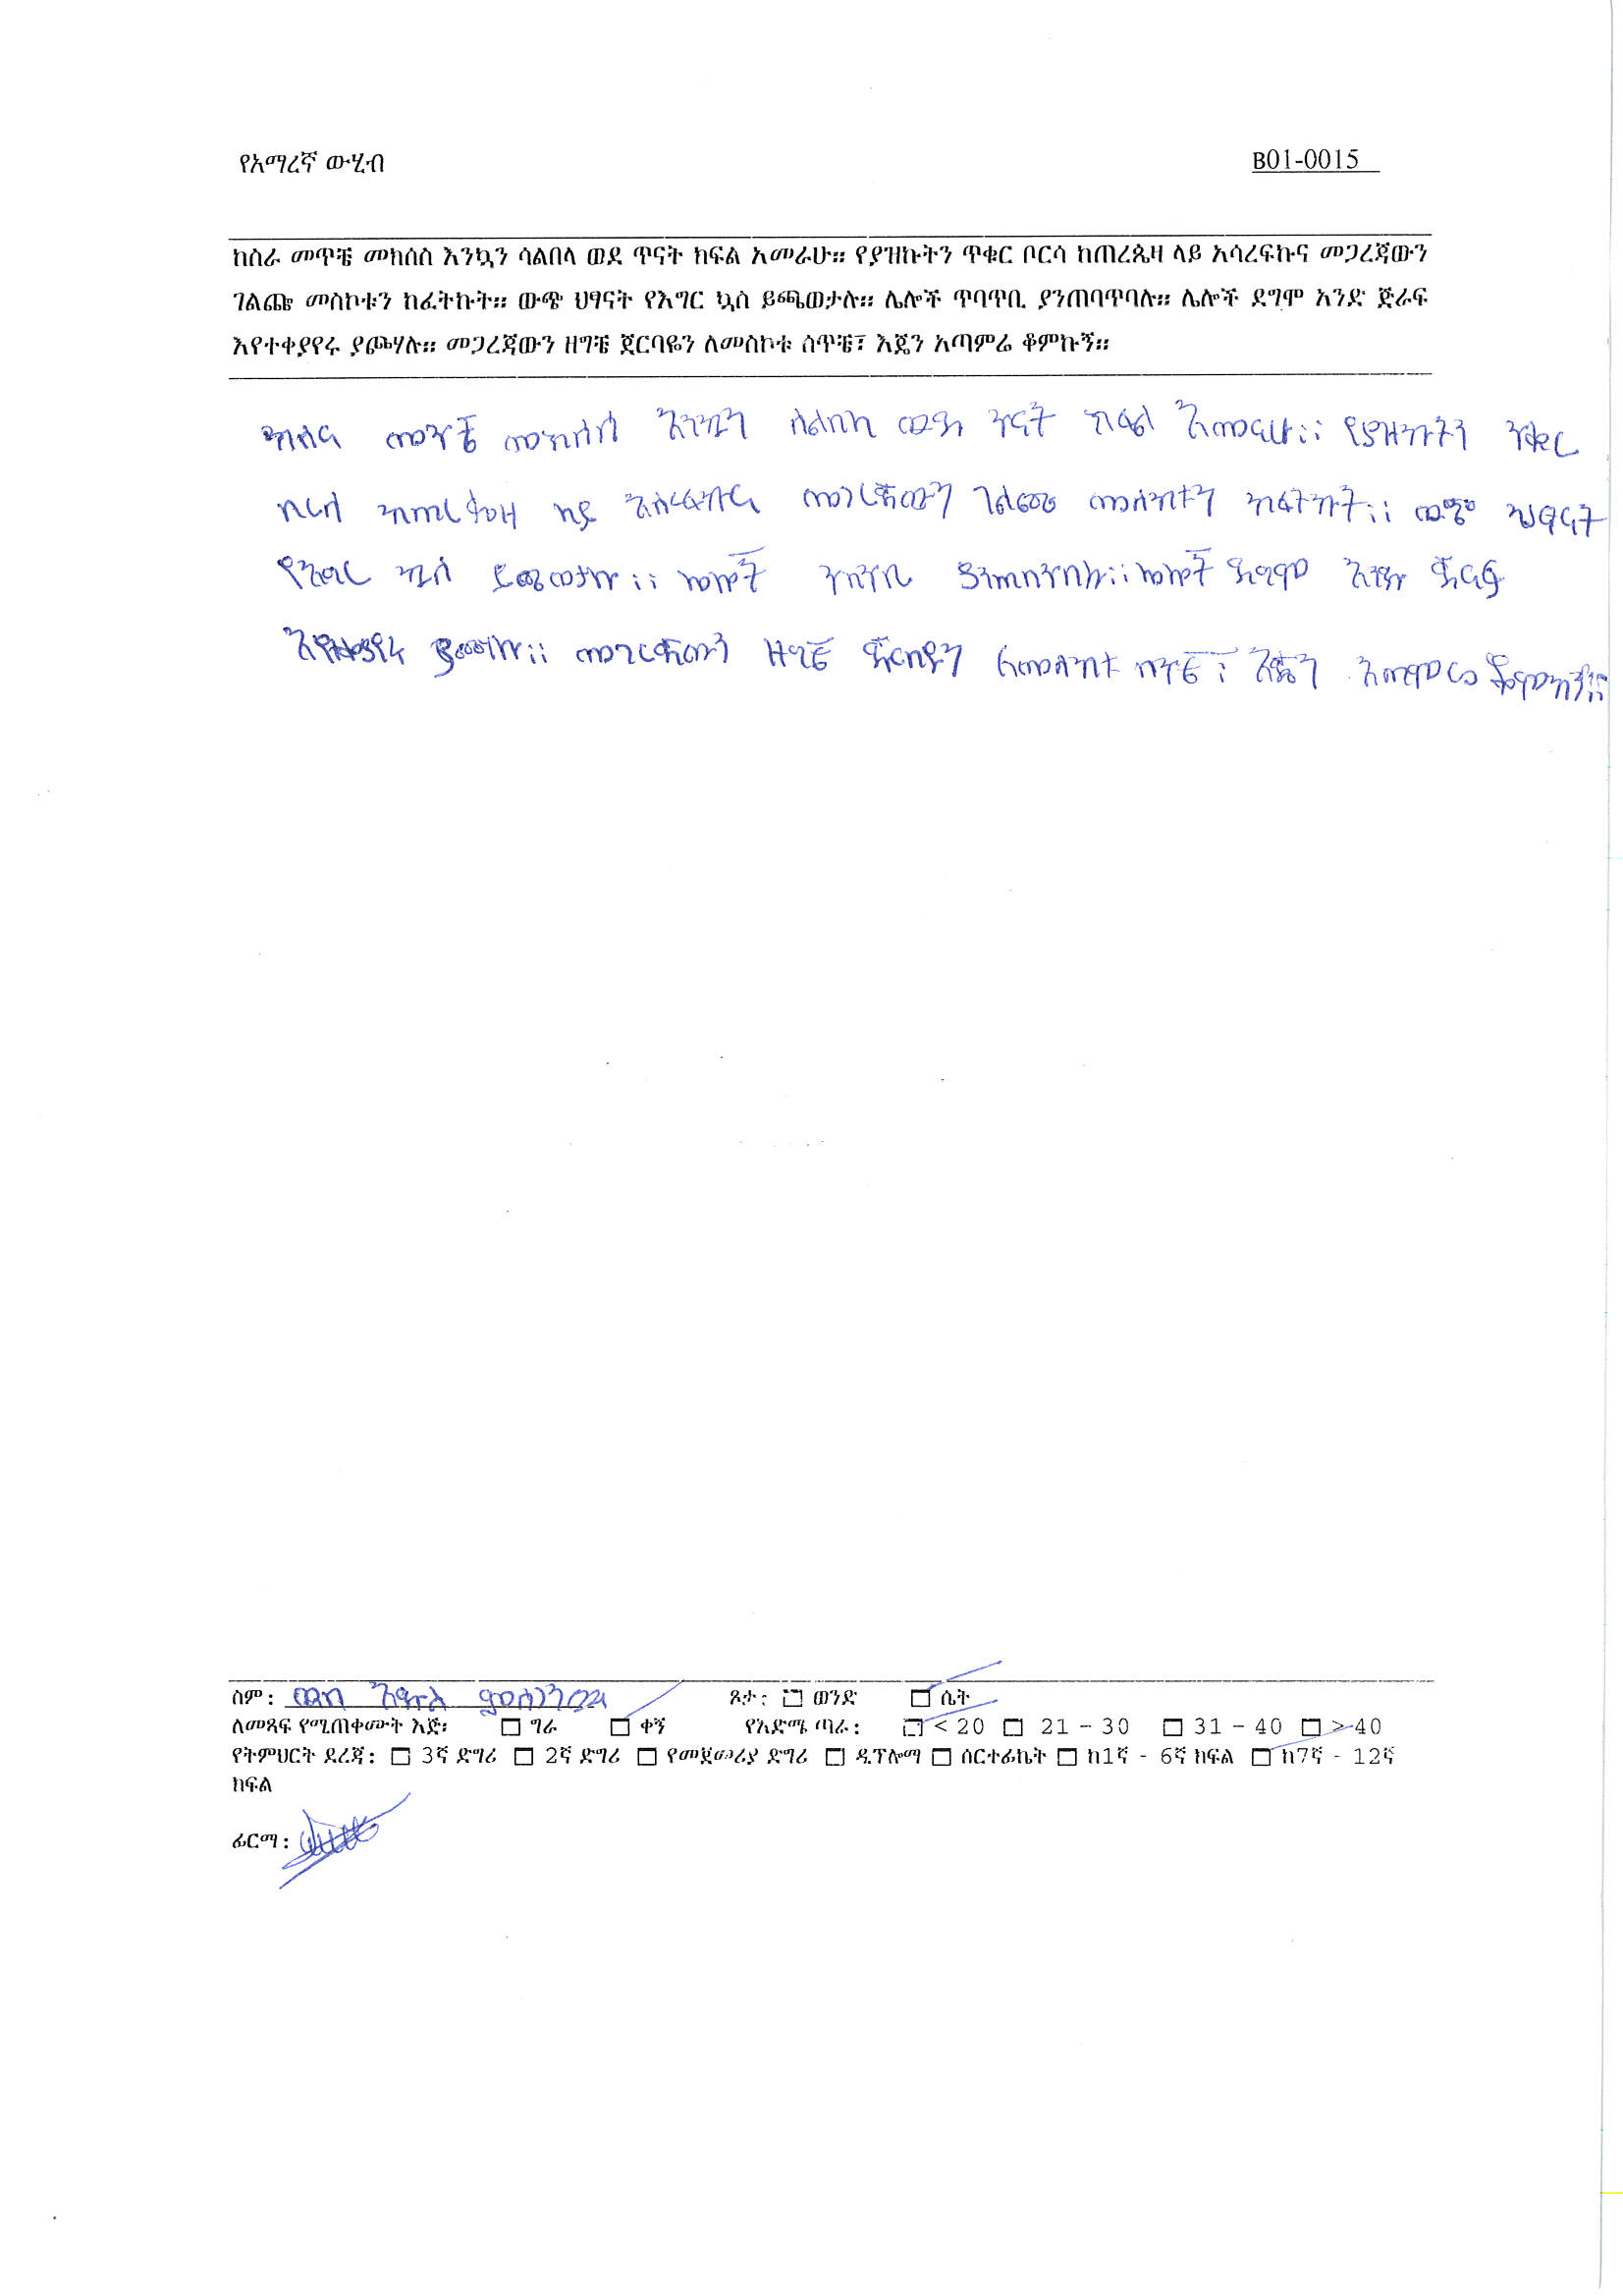 የአማረኛ ውሂብ B01-0015
ከስራ መጥቼ መክሰስ እንኳን ሳልበላ ወደ ጥናት ክፍል አመራሁ። የያዝኩትን ጥቁር ቦርሳ ከጠረጴዛ ላይ አሳረፍኩና መጋረጃውን
ገልጬ መስኮቱን ከፈትኩት። ውጭ ህፃናት የእግር ኳስ ይጫወታሉ። ሌሎች ጥባጥቢ ያንጠባጥባሉ። ሌሎች ደግሞ አንድ ጅራፍ
እየተቀያየሩ ያጮሃሉ። መጋረጃውን ዘግቼ ጀርባዬን ለመስኮቱ ሰጥቼ፣ እጄን አጣምሬ ቆምኩኝ።
ከስራ መጥቼ መክሰስ እንኳን ሳልበላ ወደ ጥናት ክፍል አመራሁ። የያዝኩትን ጥቁር
ቦርሳ ከጠረጴዛ ላይ አሳረፍኩና መጋረጃውን ገልጬ መስኮቱን ከፈትኩት። ውጭ ህፃናት
የእግር ኳስ ይጫወታሉ። ሌሎች ጥባጥቢ ያንጠባጥባሉ። ሌሎች ደግሞ አንድ ጅራፍ
እየተቀያየሩ ያጮሃሉ። መጋረጃውን ዘግቼ ጀርባዬን ለመስኮቱ ሰጥቼ፣ እጄን አጣምሬ ቆምኩኝ።
ስም: ፆታ: ወንድ ሴት
ለመጻፍ የሚጠቀሙት እጅ፡ ግራ ቀኝ የእድሜ ጣራ: < 20 21 – 30 31 – 40 > 40
የትምህርት ደረጃ: 3ኛ ድግሪ 2ኛ ድግሪ የመጀመሪያ ድግሪ ዲፕሎማ ሰርተፊኬት ከ1ኛ - 6ኛ ክፍል ከ7ኛ - 12ኛ
ክፍል
ፊርማ: